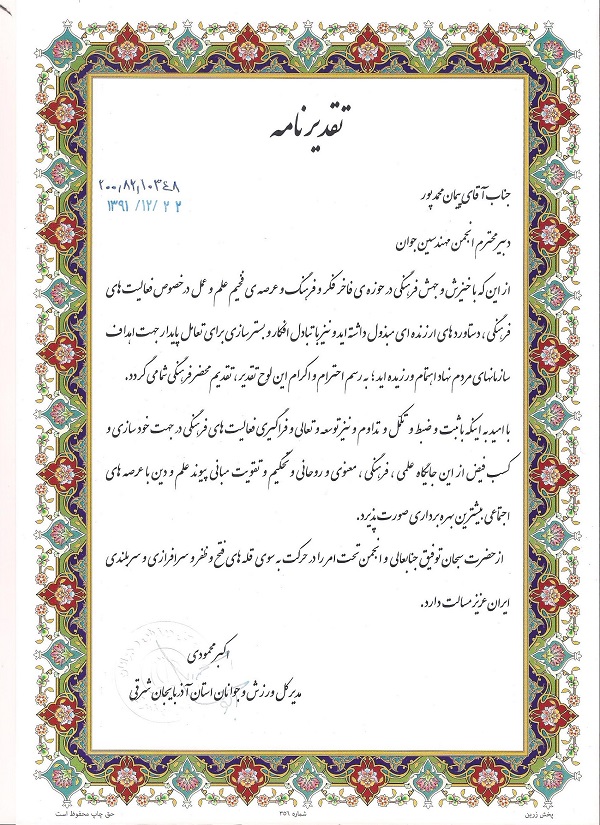 تقدیرنامه
جناب آقای پیمان محمدپور
۲۰۰٫۸۲٫۱۰۳۴۸
دبیر محترم انجمن مهندسین جوان
۱۳۹۱ /۱۲/ ۲ ۲
از این که با خیزش و جهش فرهنگی در حوزه ی فاخر فکر و فرهنگ و عرصه ی فخیم علم و عمل در خصوص فعالیت های
فرهنگی ، دستاوردهای ارزنده ای مبذول داشته اید و نیز با تبادل افکار و بسترسازی برای تعامل پایدار جهت اهداف
سازمانهای مردم نهاد اهتمام ورزیده اید ؛ به رسم احترام و اکرام این لوح تقدیر ، تقدیم محضر فرهنگی شما می گردد.
با امید به اینکه با ثبت و ضبط و تکمل و تداوم و نیز توسعه و تعالی و فراگیری فعالیت های فرهنگی در جهت خودسازی و
کسب فیض از این جایگاه علمی ، فرهنگی ، معنوی و روحانی و تحکیم و تقویت مبانی پیوند علم و دین با عرصه های
اجتماعی بیشترین بهره برداری صورت پذیرد.
از حضرت سبحان توفیق جنابعالی و انجمن تحت امر را در حرکت به سوی قله های فتح و ظفر و سرافرازی و سربلندی
ایران عزیز مسالت دارد.
اکبر محمودی
مدیر کل ورزش و جوانان استان آذربایجان شرقی
پخش زرین
شماره ۳۵۶
حق چاپ محفوظ است